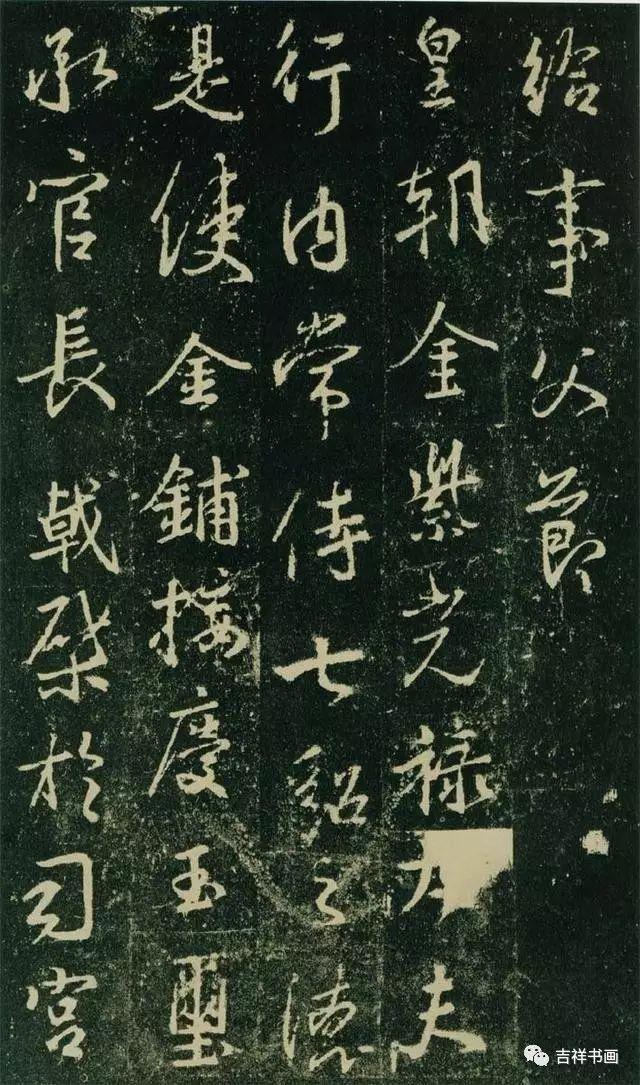 給事父節
皇朝金紫光祿大夫
行內常侍七貂之德
是使金鋪接慶玉璽
承官長戟棨於司宮
吉祥书画